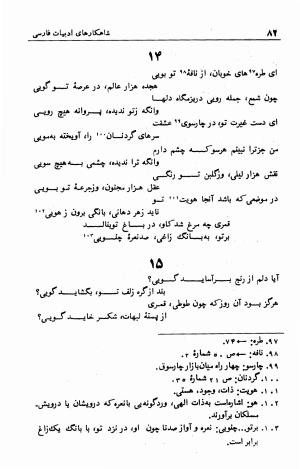 ۸۲
شاهکارهای ادبیات فارسی
۱۴
ای طره۹۷های خوبان، از نافه۹۸ تو بویی
هجده هزار عالم، در عرصهٔ تو گویی
چون شمع، جمله رویی دربزمگاه دلها
وانگه زتو ندیده، پروانه هیچ رویی
ای دست غیرت تو، در چارسوی۹۹ عشقت
سرهای گردنان۱۰۰ را، آویخته به‌مویی
من جزترا نبینم هرسو‌که چشم دارم
وانگه ترا ندیده، چشمی به‌هیچ سویی
نقش هزار لیلی، وزگلبن تو رنگی
عقل هزار مجنون، وزجرعهٔ تو بویی
در موضعی که باشد آنجا هویت۱۰۱ تو
ناید زهر دهانی، بانگی برون زهویی۱۰۲
قمری چه مرغ شد کاو، در باغ تو بنالد
برتو، به‌بانگ زاغی، صدنعرهٔ چلویی۱۰۳
۱۵
آیا دلم از رنج برآساید گویی؟
بند از گره زلف تو، بگشاید گویی؟
هرگز بود آن روز که چون طوطی، قمری
از پستهٔ لبهات، شکر خاید گویی؟
۹۷. طره: ← ۷۴.
۹۸. نافه: ← ص ۵۰ شمارهٔ ۲.
۹۹. چارسو: چهار راه میان بازار چارسوق.
۱۰۰. گردنان: ص ۲۱ شمارهٔ ۳۵.
۱۰۱. هویت: ذات، وجود، هستی.
۱۰۲. هو: اشاره‌است به‌ذات الهی، وردگونه‌یی بانعره‌که درویشان یا درویش. مسلکان برآورند.
۱۰۳. برتو...چلویی: نعره و آواز صدتا چون او، در نزد تو، با بانگ یک‌زاغ برابر است.